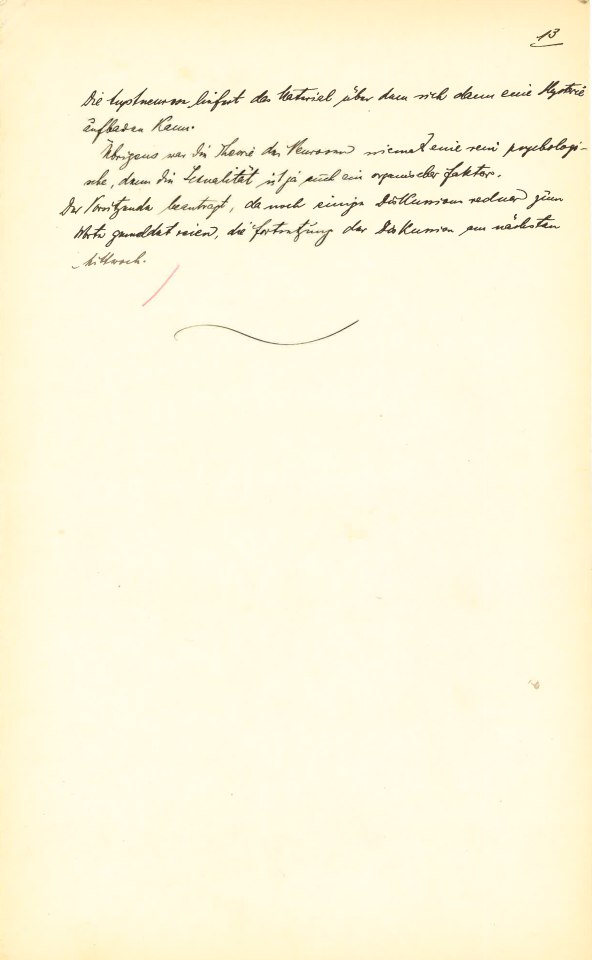 13
Die Angstneurose liefert das Material über dem sich dann eine Hysterie
aufbauen kann.
Übrigens war die Theorie der Neurosen niemals eine rein psychologi-
sche, denn die Sexualität ist ja auch ein organischer Faktor.
Der Vorsitzende beantragt, da noch einige Diskussionsredner zum
Worte gemeldet seien, die Fortsetzung der Diskussion am nächsten
Mittwoch.